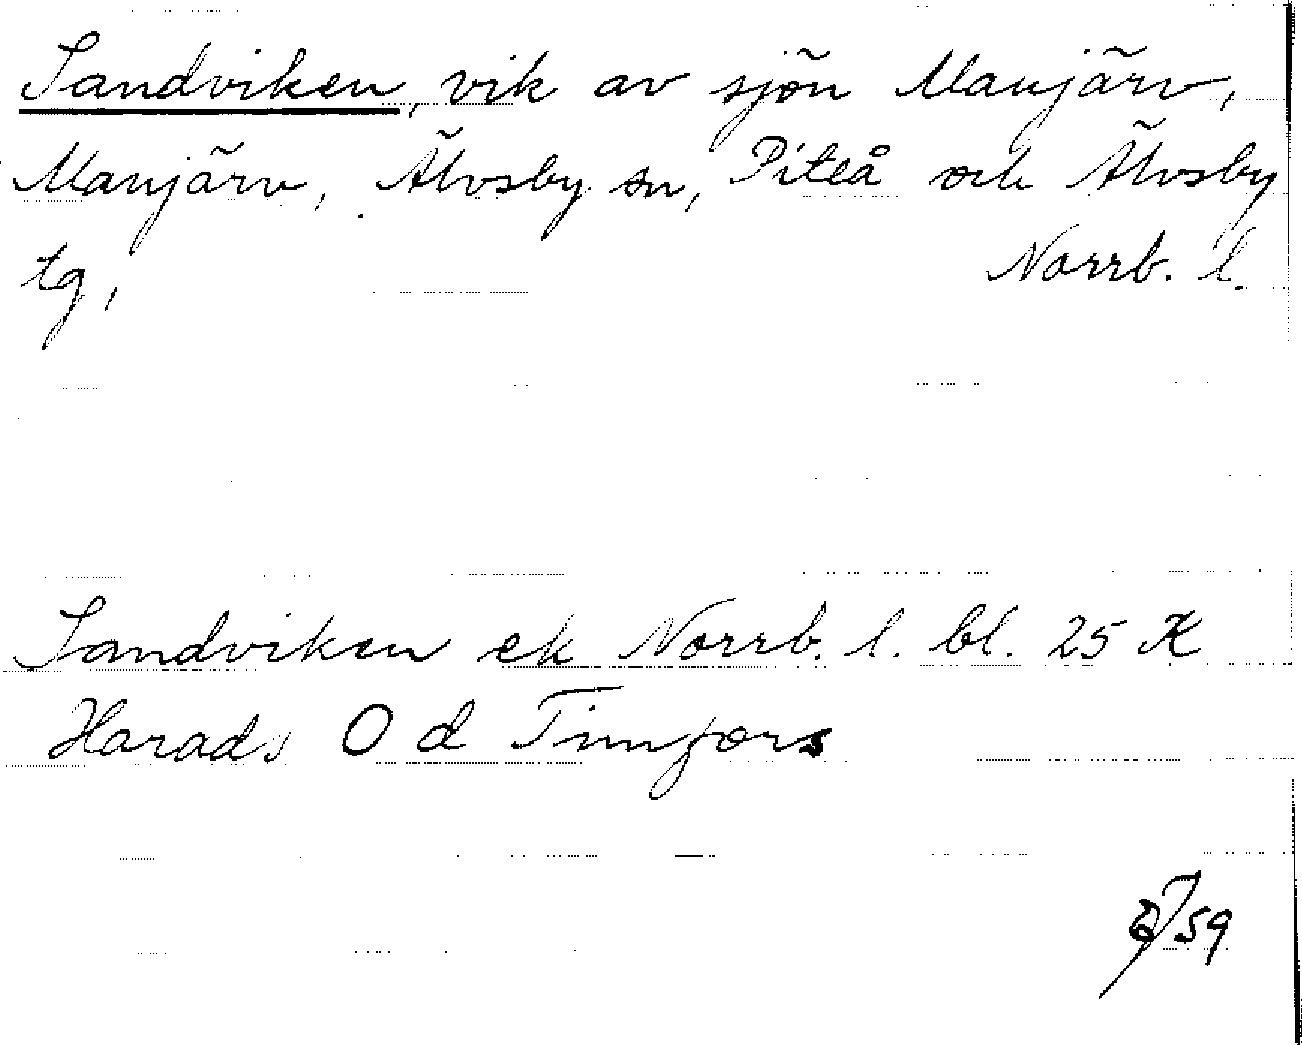 Sandviken, vik av sjön Manjärv,
Manjärv, Älvsby sn, Piteå och Älvsby
tg, Norrb. l.
Sandviken ek Norrb. l. bl. 25 K
Harads O d Timfors
59